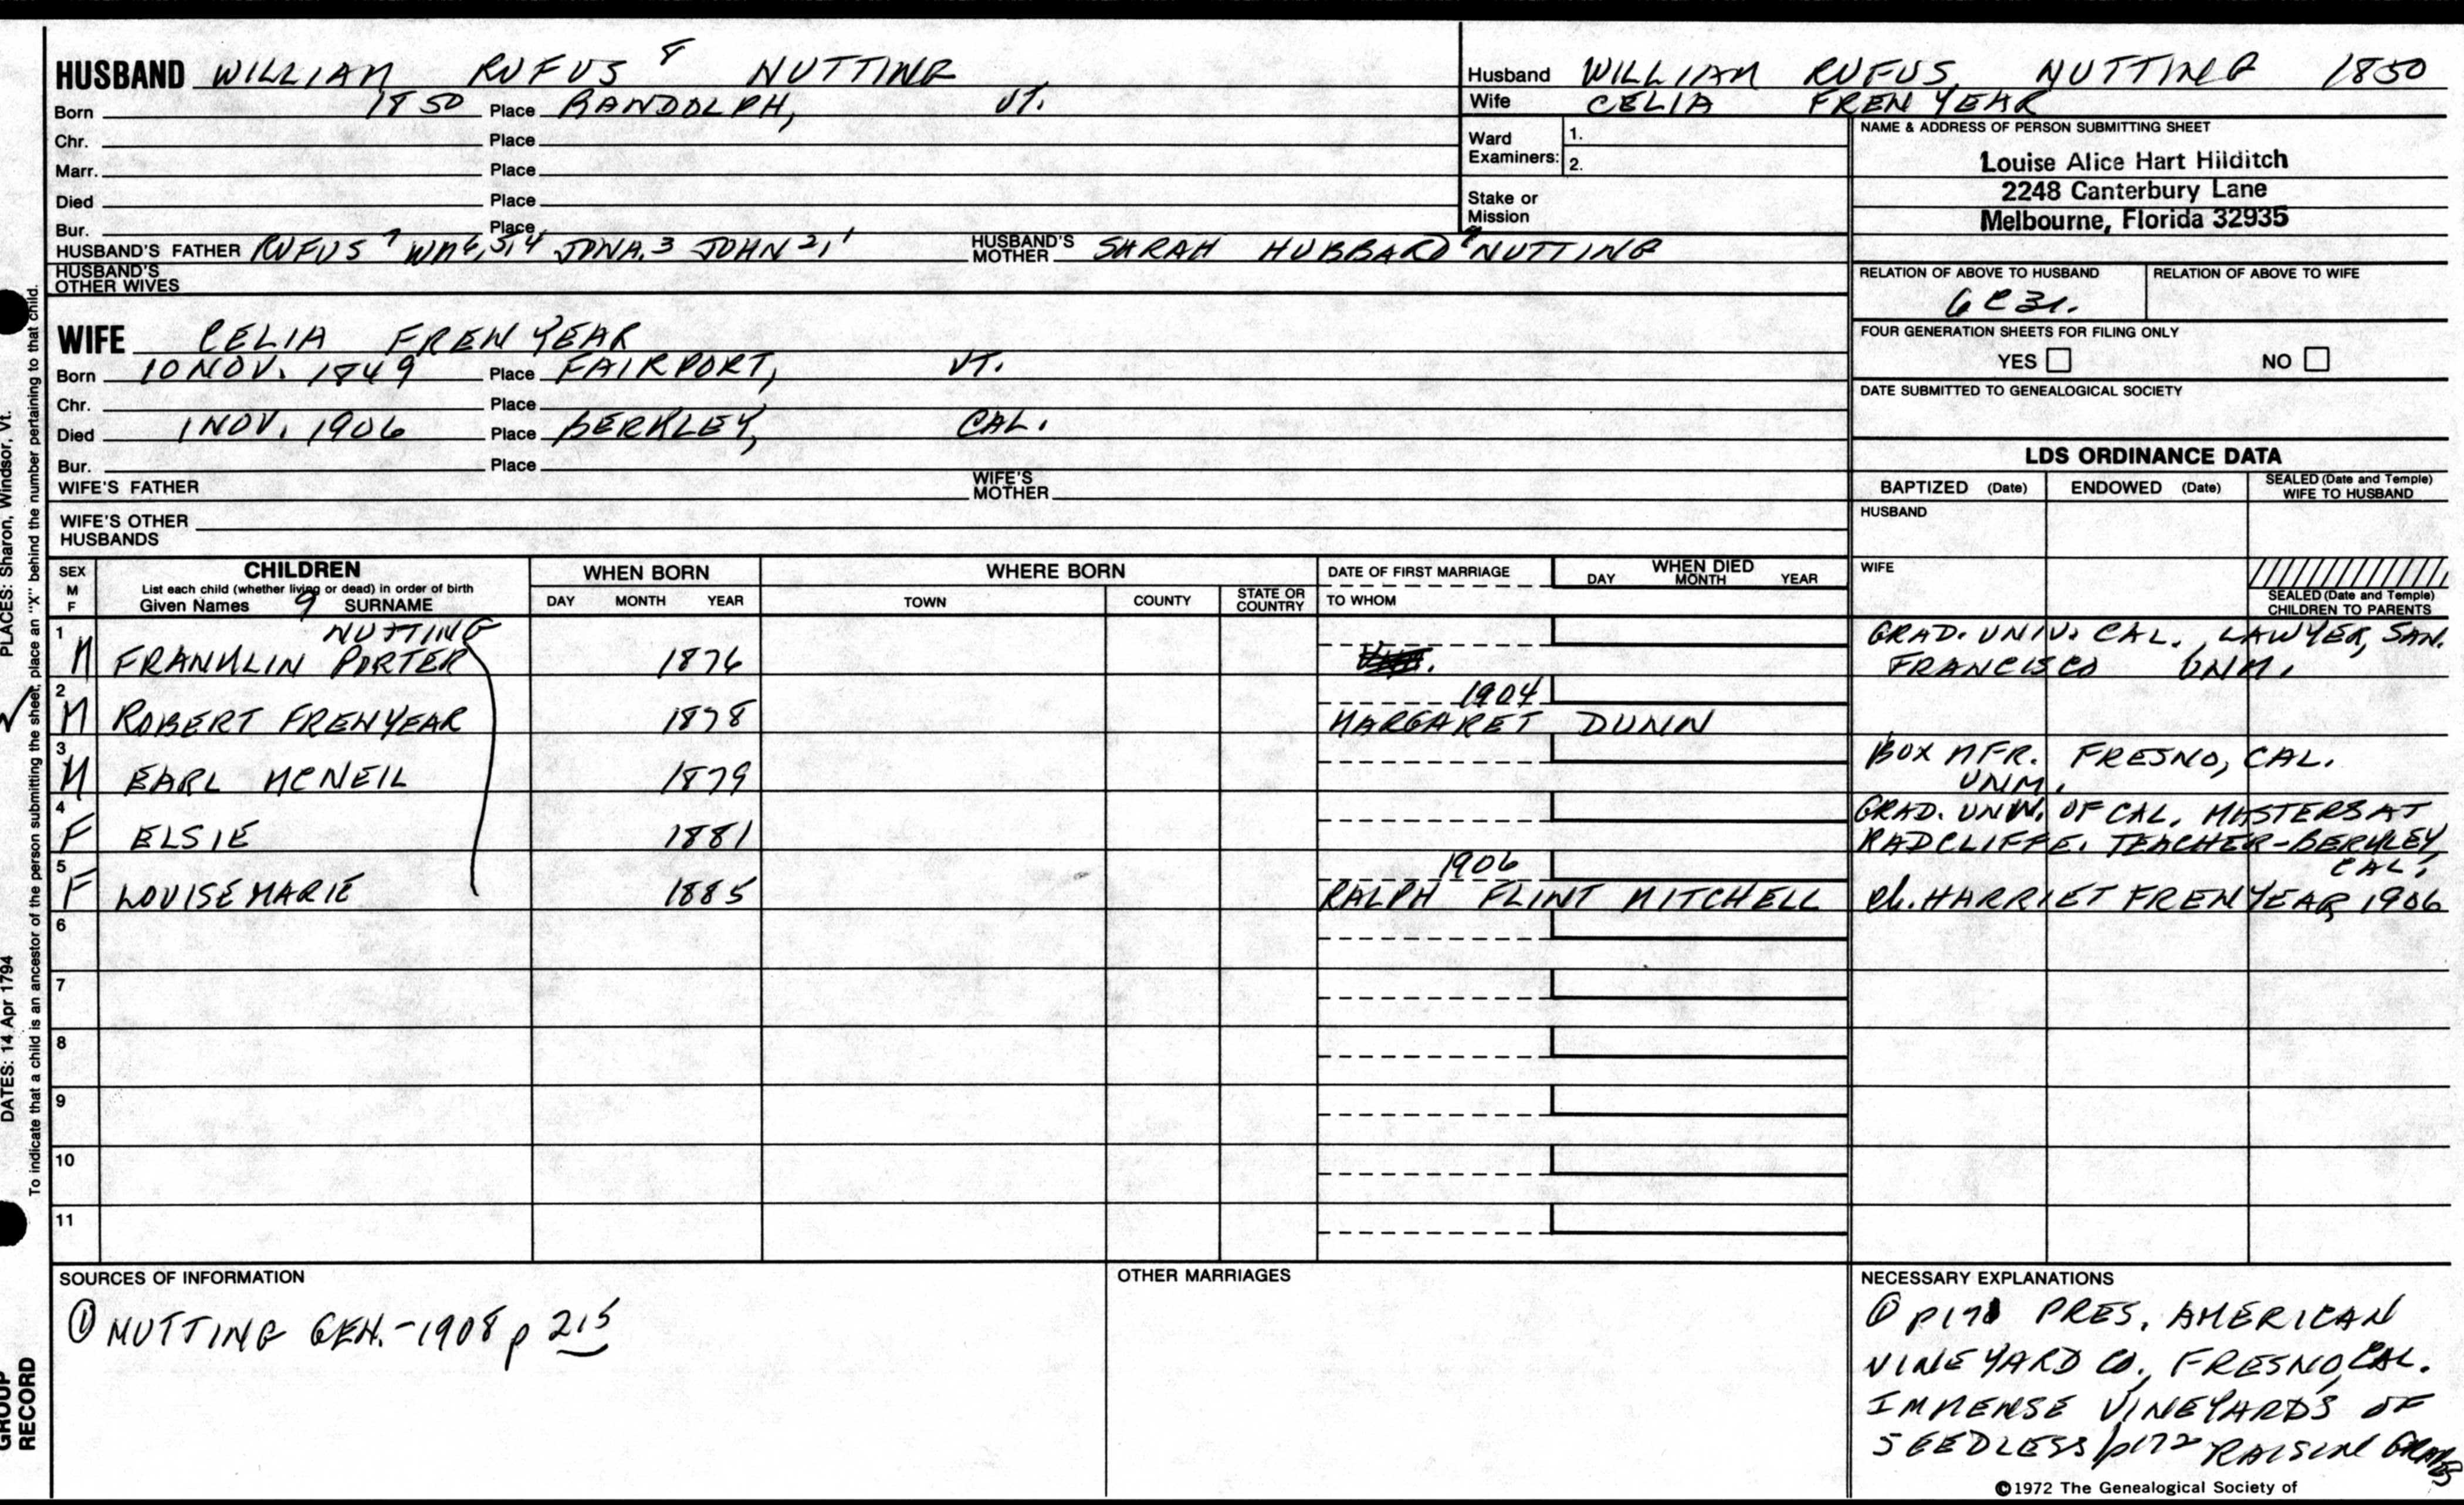 HUSBAND WILLIAM RUFUS 8 NUTTING
Born 1850 Place RANDOLPH, VT.
Chr. Place
Marr. Place
Died Place
Bur. Place
HUSBAND'S FATHER RUFUS 7 WM 6,5,4 JONA. 3 JOHN 2,1 HUSBAND'S MOTHER SARAH HUBBARD NUTTING
HUSBAND'S OTHER WIVES
WIFE CELIA FRENYEAR
Born 10 NOV. 1849 Place FAIRPORT, VT.
Chr. Place
Died 1 NOV. 1906 Place BERKLEY, CAL.
Bur. Place
WIFE'S FATHER WIFE'S MOTHER
WIFE'S OTHER HUSBANDS
Husband WILLIAM RUFUS NUTTING 1850
Wife CELIA FRENYEAR
Ward Examiners: 1.
2.
Stake or Mission
NAME & ADDRESS OF PERSON SUBMITTING SHEET
Louise Alice Hart Hilditch
2248 Canterbury Lane
Melbourne, Florida 32935
RELATION OF ABOVE TO HUSBAND RELATION OF ABOVE TO WIFE
6C3r.
FOUR GENERATION SHEETS FOR FILING ONLY
YES NO
DATE SUBMITTED TO GENEALOGICAL SOCIETY
LDS ORDINANCE DATA
BAPTIZED (Date) ENDOWED (Date) SEALED (Date and Temple) WIFE TO HUSBAND
HUSBAND
WIFE
SEALED (Date and Temple) CHILDREN TO PARENTS
SEX M F CHILDREN WHEN BORN WHERE BORN DATE OF FIRST MARRIAGE WHEN DIED
List each child (whether living or dead) in order of birth
Given Names 9 SURNAME DAY MONTH YEAR TOWN COUNTY STATE OR COUNTRY TO WHOM DAY MONTH YEAR
NUTTING
1 M FRANKLIN PORTER 1876 GRAD. UNIV. CAL., LAWYER, SAN.
FRANCISCO UNM.
1904
2 M ROBERT FRENYEAR 1878 MARGARET DUNN
3 M EARL MCNEIL 1879 BOX MFR. FRESNO, CAL.
UNM.
4 F ELSIE 1881 GRAD. UNIV. OF CAL. MASTERS AT
RADCLIFFE. TEACHER-BERKLEY
CAL.
1906
5 F LOUISE MARIE 1885 RALPH FLINT MITCHELL Ch. HARRIET FRENYEAR 1906
6
7
8
9
10
11
SOURCES OF INFORMATION
① NUTTING GEN.-1908 p 215
OTHER MARRIAGES
NECESSARY EXPLANATIONS
① P171 PRES. AMERICAN
VINEYARD CO., FRESNO, CAL.
IMMENSE VINEYARDS OF
SEEDLESS /p172 RAISIN GRAPES
©1972 The Genealogical Society of
PLACES: Sharon, Windsor, Vt.
DATES: 14 Apr 1794
To indicate that a child is an ancestor of the person submitting the sheet, place an "X" behind the number pertaining to that child.
GROUP
RECORD